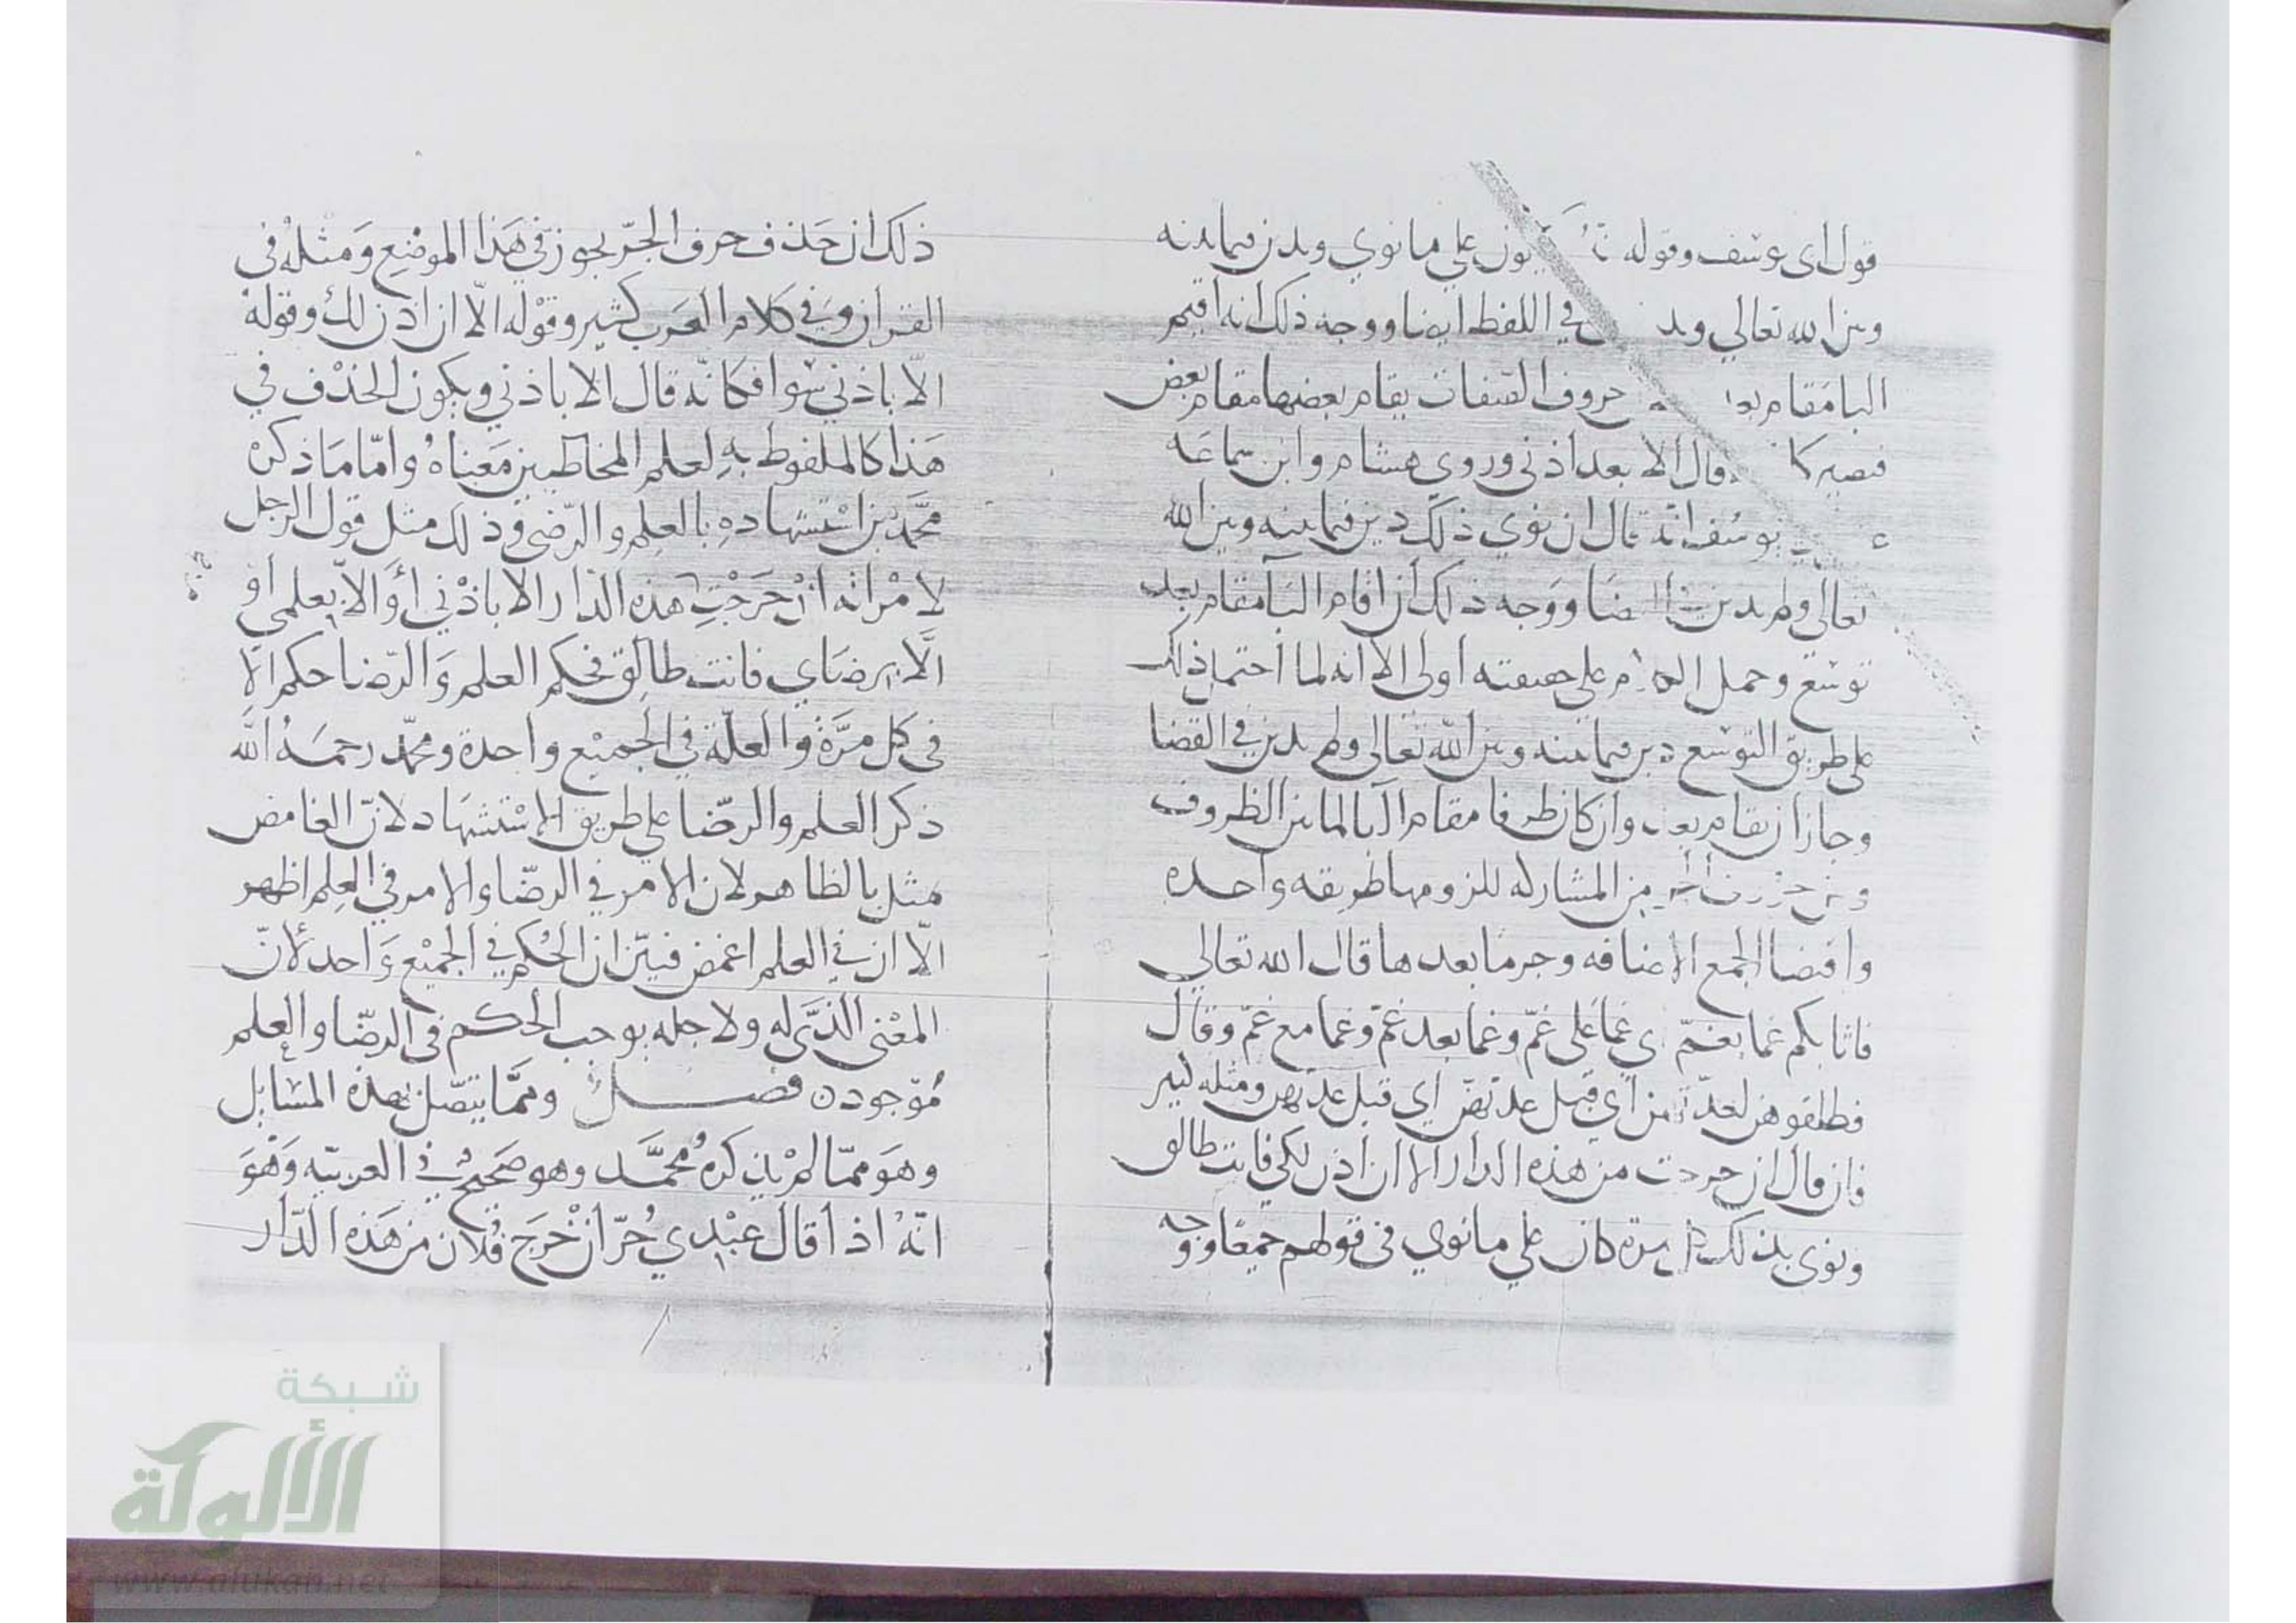 قول ابى يوسف وقوله يكون علي ما نوي ويدين فيما بينه
وبين الله تعالي في اللفظ ايضا ووجه ذلك انه اقيم
البا مقام حروف الصفات يقام بعضها مقام بعض
فيصير كا قال الا بعد اذني وروي هشام وابن سماعه
يوسف انه قال ان نوي ذلك دين فيما بينه وبين الله
تعالي ولم يدين ووجه ذلك ان اقام البا مقام بعد
توسّع وحمل الكلام علي حقيقته اولى الا انه لما احتمل ذلك
على طريق التوسع دين فيما بينه وبين الله تعالى ولم يدين في القضا
وجاز ان يقام بعد وان كان ظرفا مقام البا لما بين الظروف
وبين حروف الجر من المشاركه للزومها طريقه واحده
واقتضا الجمع الاضافه وجر ما بعدها قال الله تعالي
فاثابكم غما بغمّ اي غما على غمّ وغما بعد غمّ وغما مع غمّ وقال
فطلقوهن لعدّتهن اي قبل عدتهنّ اي قبل عدتهن ومثله كثير
فان قال ان خرجت من هذه الدار الا ان اذن لكي فانت طالق
ونوى بذلك كل مرة كان علي ما نوي في قولهم جميعًا ووجه
ذلك ان حَذف حرف الجرّ يجوز في هَذا الموضِع وَمثلهُ في
القران وَفي كلام العَرب كثير وقوْله الّا ان اذن لك وقوله
الّا باذني سَوا فكانّه قال الا باذني ويكون الحَذْف في
هَذا كالملفوط بهِ لعلم المخاطبين مَعناهُ وامّا مَا ذكره
محمَّد من اسْتشهادهِ بالعِلم والرّضى فذلك مثل قول الرجل
لامْراته انْ خَرَجْتِ من هذه الدّار الا باذْني أوَ الا بعلمي أو
الَّا برضَاي فانت طالِق فحكم العلم وَالرّضا حكم الإذن
في كل مرَّة والعلّة في الجميْع واحدة ومحمّد رحمَهُ الله
ذكر العلم والرضّا علي طريق الاسْتشهَاد لانّ الغامض
مثل بالظاهر لان الامر في الرضّا والامر في العِلم اظهر
الّا ان في العلم اغمض فبيّن ان الحُكم في الجميْع وَاحد لأنّ
المعْنى الذَّي له ولاجله يوجب الحكم في الرضّا والعلم
مُوْجود ن فصل وممَّا يتصّل بهذه المسَايل
وهَو ممّا لمْ يذكرهُ مُحمَّد وهو صَحيحٌ في العربيّه وَهْوَ
انّه اذا قال عبْدي حُرّ انْ خْرَجَ فُلان من هَذه الدّار
شبكة
الألوكة
www.alukah.net